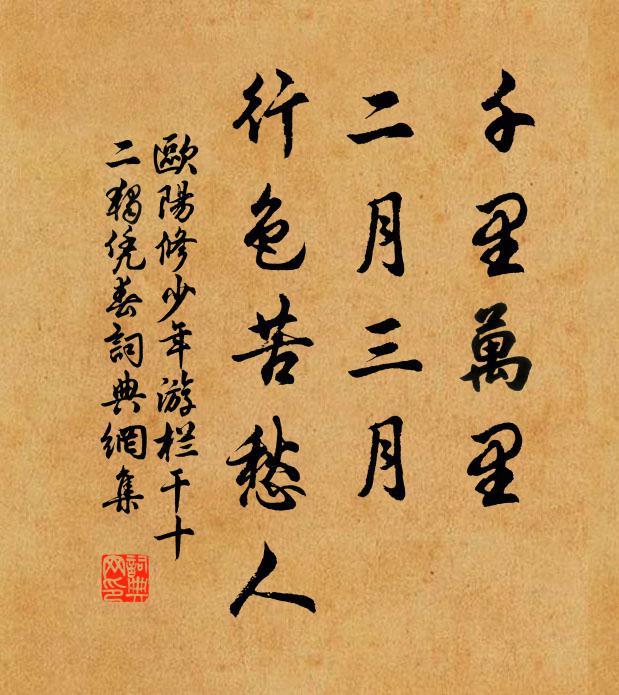 千里萬里
二月三月
行色苦愁人
歐陽修少年游栏干十
二獨凭春詞典網集
詞典
网印